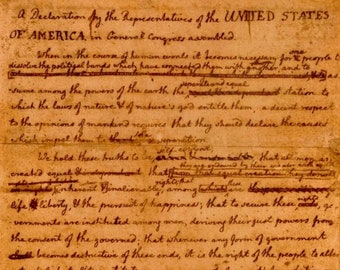 A Declaration by the Representatives of the UNITED STATES
OF AMERICA, in General Congress assembled.
When in the course of human events it becomes necessary for one people to
dissolve the political bands which have connected them with another, and to
assume among the powers of the earth the separate and equal station to
which the laws of nature & of nature's god entitle them, a decent respect
to the opinions of mankind requires that they should declare the causes
which impel them to the separation.
We hold these truths to be self-evident; that all men are
created equal that they are endowed by their creator with
rights; that among these are
life, liberty, & the pursuit of happiness; that to secure these rights, go
vernments are instituted among men, deriving their just powers from
the consent of the governed; that whenever any form of government
becomes destructive of these ends, it is the right of the people to alter